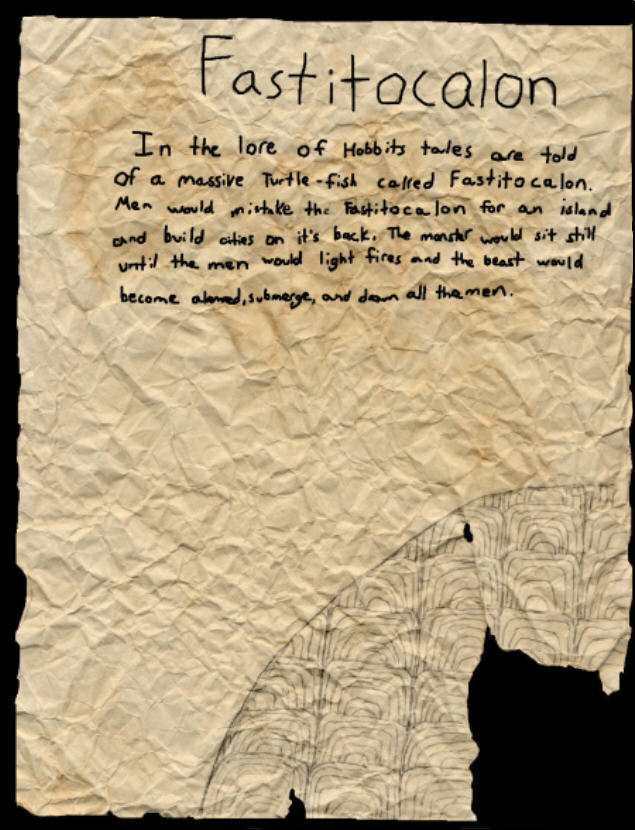 Fastitocalon
In the lore of Hobbits tales are told
Of a massive Turtle-fish called Fastitocalon.
Men would mistake the Fastitocalon for an island
and build cities on it's back. The monster would sit still
until the men would light fires and the beast would
become alarmed, submerge, and down all the men.